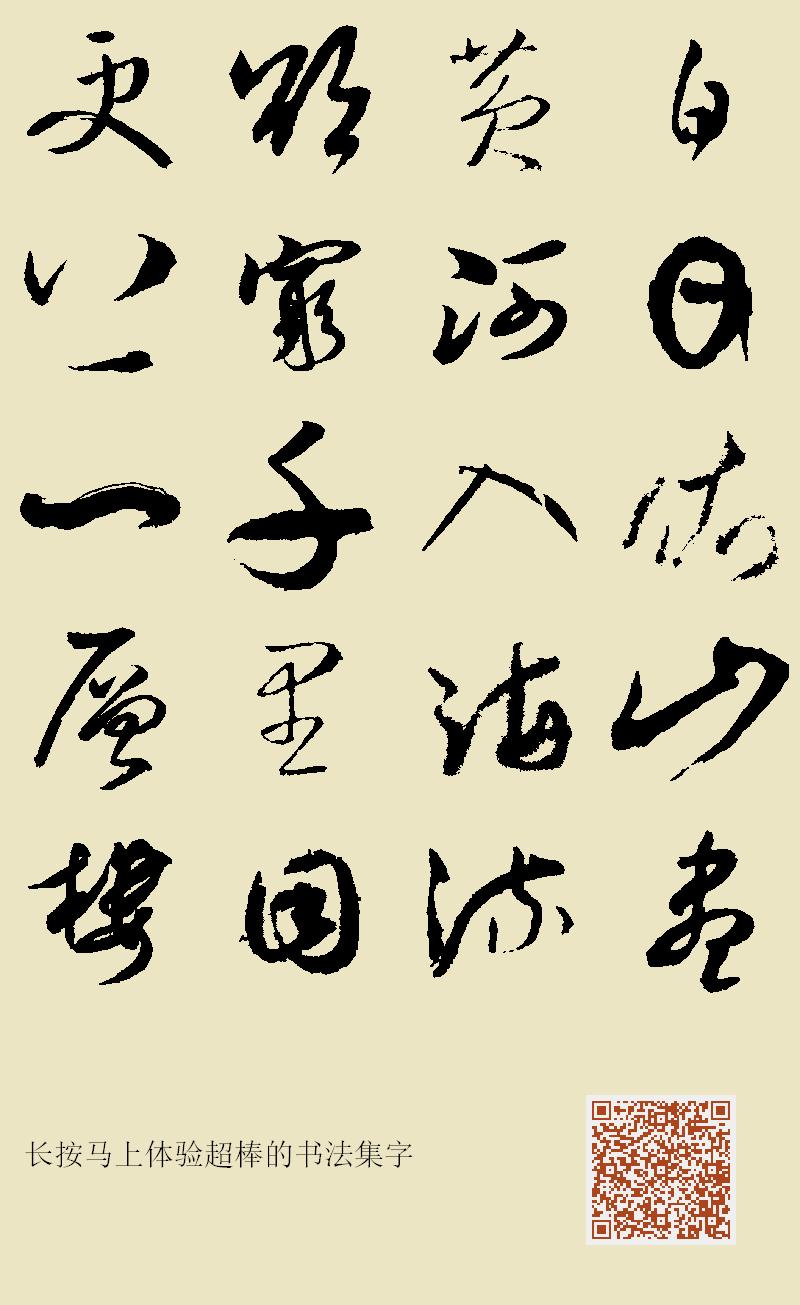 白日依山盡
黃河入海流
欲窮千里目
更上一層樓
长按马上体验超棒的书法集字